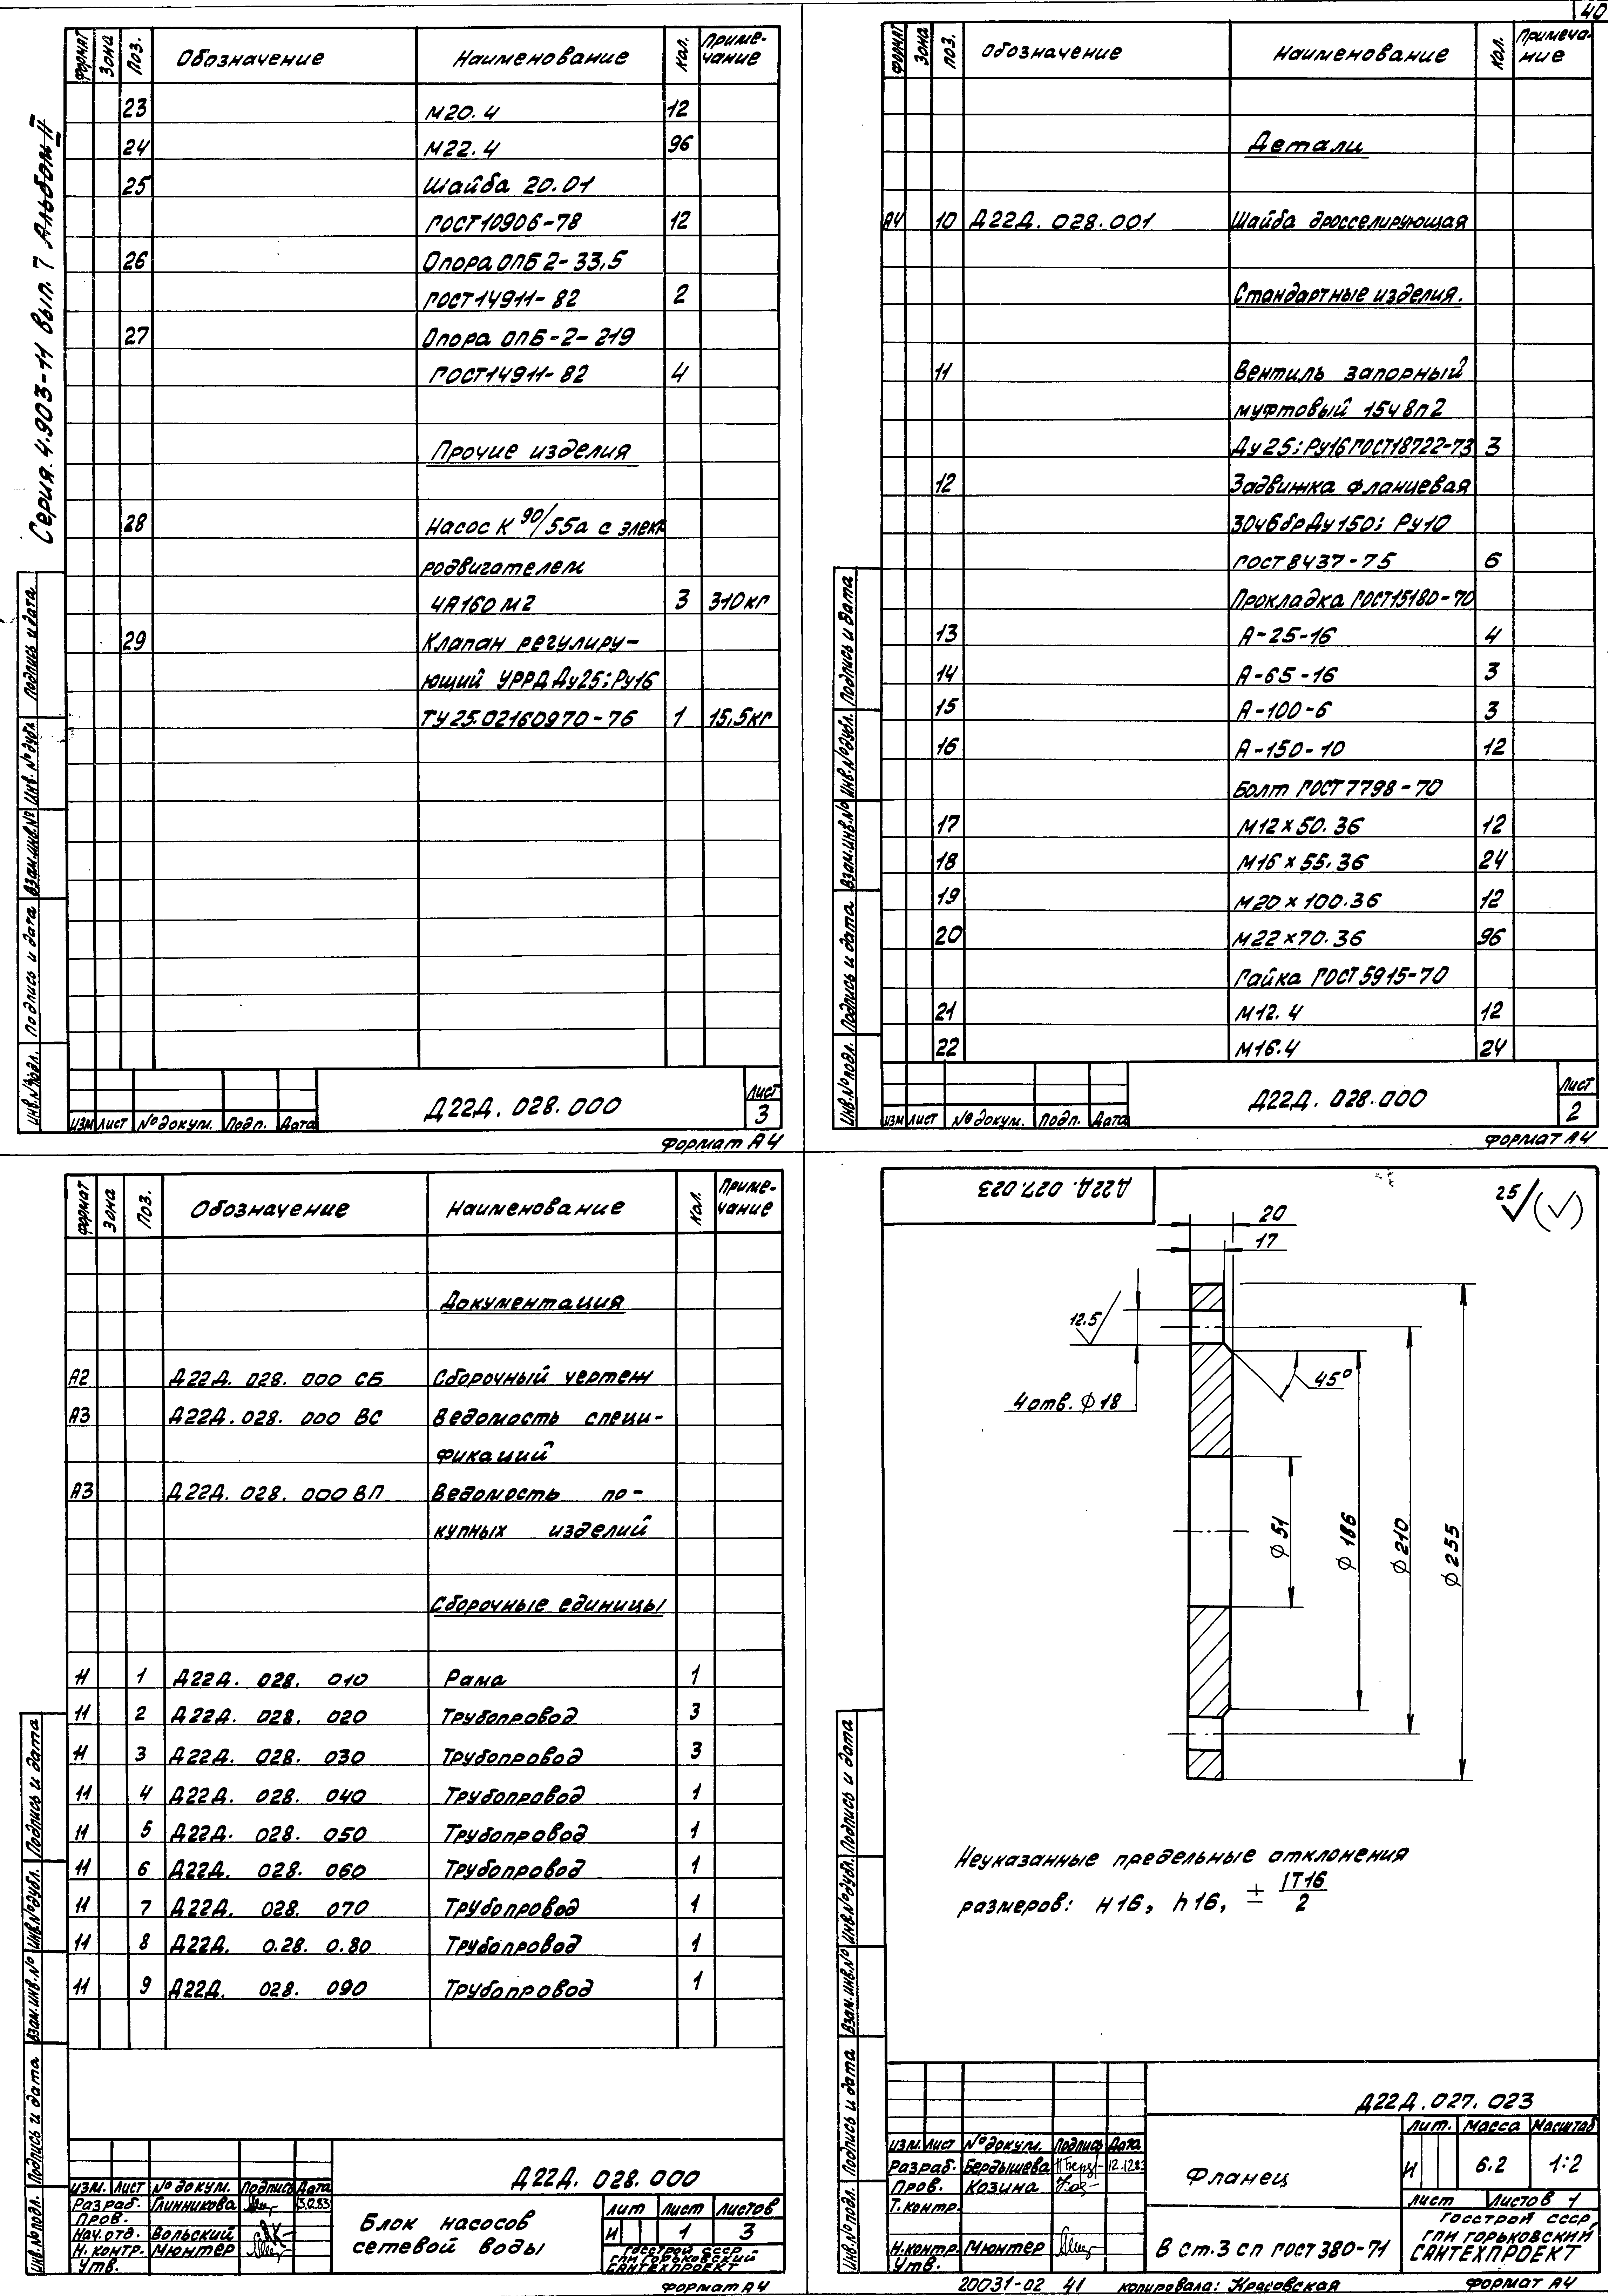 40
Серия 4.903-11 Вып. 7 Альбом II
Формат Зона Поз. Обозначение Наименование Кол. Приме-чание
23 М20.4 12
24 М22.4 96
25 Шайба 20.01
ГОСТ 10906-78 12
26 Опора ОПБ 2-33,5
ГОСТ 14911-82 2
27 Опора ОПБ-2-219
ГОСТ 14911-82 4
Прочие изделия
28 Насос К 90/55а с элект
родвигателем
4А160М2 3 310кг
29 Клапан регулиру-
ющий УРРД Ду25; Ру16
ТУ 25.02160970-76 1 15,5кг
Инв.№подл. Подпись и дата Взам.инв.№ Инв.№дубл. Подпись и дата
Изм Лист № докум. Подп. Дата
Д22Д. 028.000
Лист
3
Формат А4
Формат Зона Поз. Обозначение Наименование Кол. Примеча-ние
Детали
А4 10 Д22Д. 028.001 Шайба дросселирующая
Стандартные изделия.
11 Вентиль запорный
муфтовый 15ч8п2
Ду25; Ру16 ГОСТ18722-73 3
12 Задвижка фланцевая
30ч6бр Ду150; Ру10
ГОСТ 8437-75 6
Прокладка ГОСТ15180-70
13 А-25-16 4
14 А-65-16 3
15 А-100-6 3
16 А-150-10 12
Болт ГОСТ 7798-70
17 М12×50.36 12
18 М16×55.36 24
19 М20×100.36 12
20 М22×70.36 96
Гайка ГОСТ 5915-70
21 М12.4 12
22 М16.4 24
Инв.№подл. Подпись и дата Взам.инв.№ Инв.№дубл. Подпись и дата
Изм Лист № докум. Подп. Дата
Д22Д. 028.000
Лист
2
Формат А4
Формат Зона Поз. Обозначение Наименование Кол. Приме-чание
Документация
А2 Д22Д. 028. 000 СБ Сборочный чертеж
А3 Д22Д. 028. 000 ВС Ведомость специ-
фикаций
А3 Д22Д. 028. 000 ВП Ведомость по-
купных изделий
Сборочные единицы
11 1 Д22Д. 028. 010 Рама 1
11 2 Д22Д. 028. 020 Трубопровод 3
11 3 Д22Д. 028. 030 Трубопровод 3
11 4 Д22Д. 028. 040 Трубопровод 1
11 5 Д22Д. 028. 050 Трубопровод 1
11 6 Д22Д. 028. 060 Трубопровод 1
11 7 Д22Д. 028. 070 Трубопровод 1
11 8 Д22Д. 0.28. 0.80 Трубопровод 1
11 9 Д22Д. 028. 090 Трубопровод 1
Инв.№подл. Подпись и дата Взам.инв.№ Инв.№дубл. Подпись и дата
Д22Д. 028. 000
Изм. Лист № докум. Подпись Дата
Разраб. Глинникова
Пров.
Нач.отд. Вольский
Н.контр. Мюнтер
Утв.
Блок насосов
сетевой воды
Лит Лист Листов
И 1 3
Госстрой СССР
ГПИ Горьковский
Сантехпроект
Формат А4
Д22Д. 027. 023
25
20
17
12.5
45°
4 отв. ϕ18
ϕ51
ϕ186
ϕ210
ϕ255
Неуказанные предельные отклонения
размеров: Н16, h16, ± IT16/2
Инв.№подл. Подпись и дата Взам.инв.№ Инв.№дубл. Подпись и дата
Д22Д. 027. 023
Изм. Лист № докум. Подпись Дата
Разраб. Бердышева 12.12.83
Пров. Козина
Т.контр.
Н.контр. Мюнтер
Утв.
Фланец
Лит. Масса Масштаб
И 6.2 1:2
Лист Листов 1
В ст.3 сп ГОСТ 380-71
Госстрой СССР
ГПИ Горьковский
Сантехпроект
20031-02 41 Копировала: Красовская Формат А4